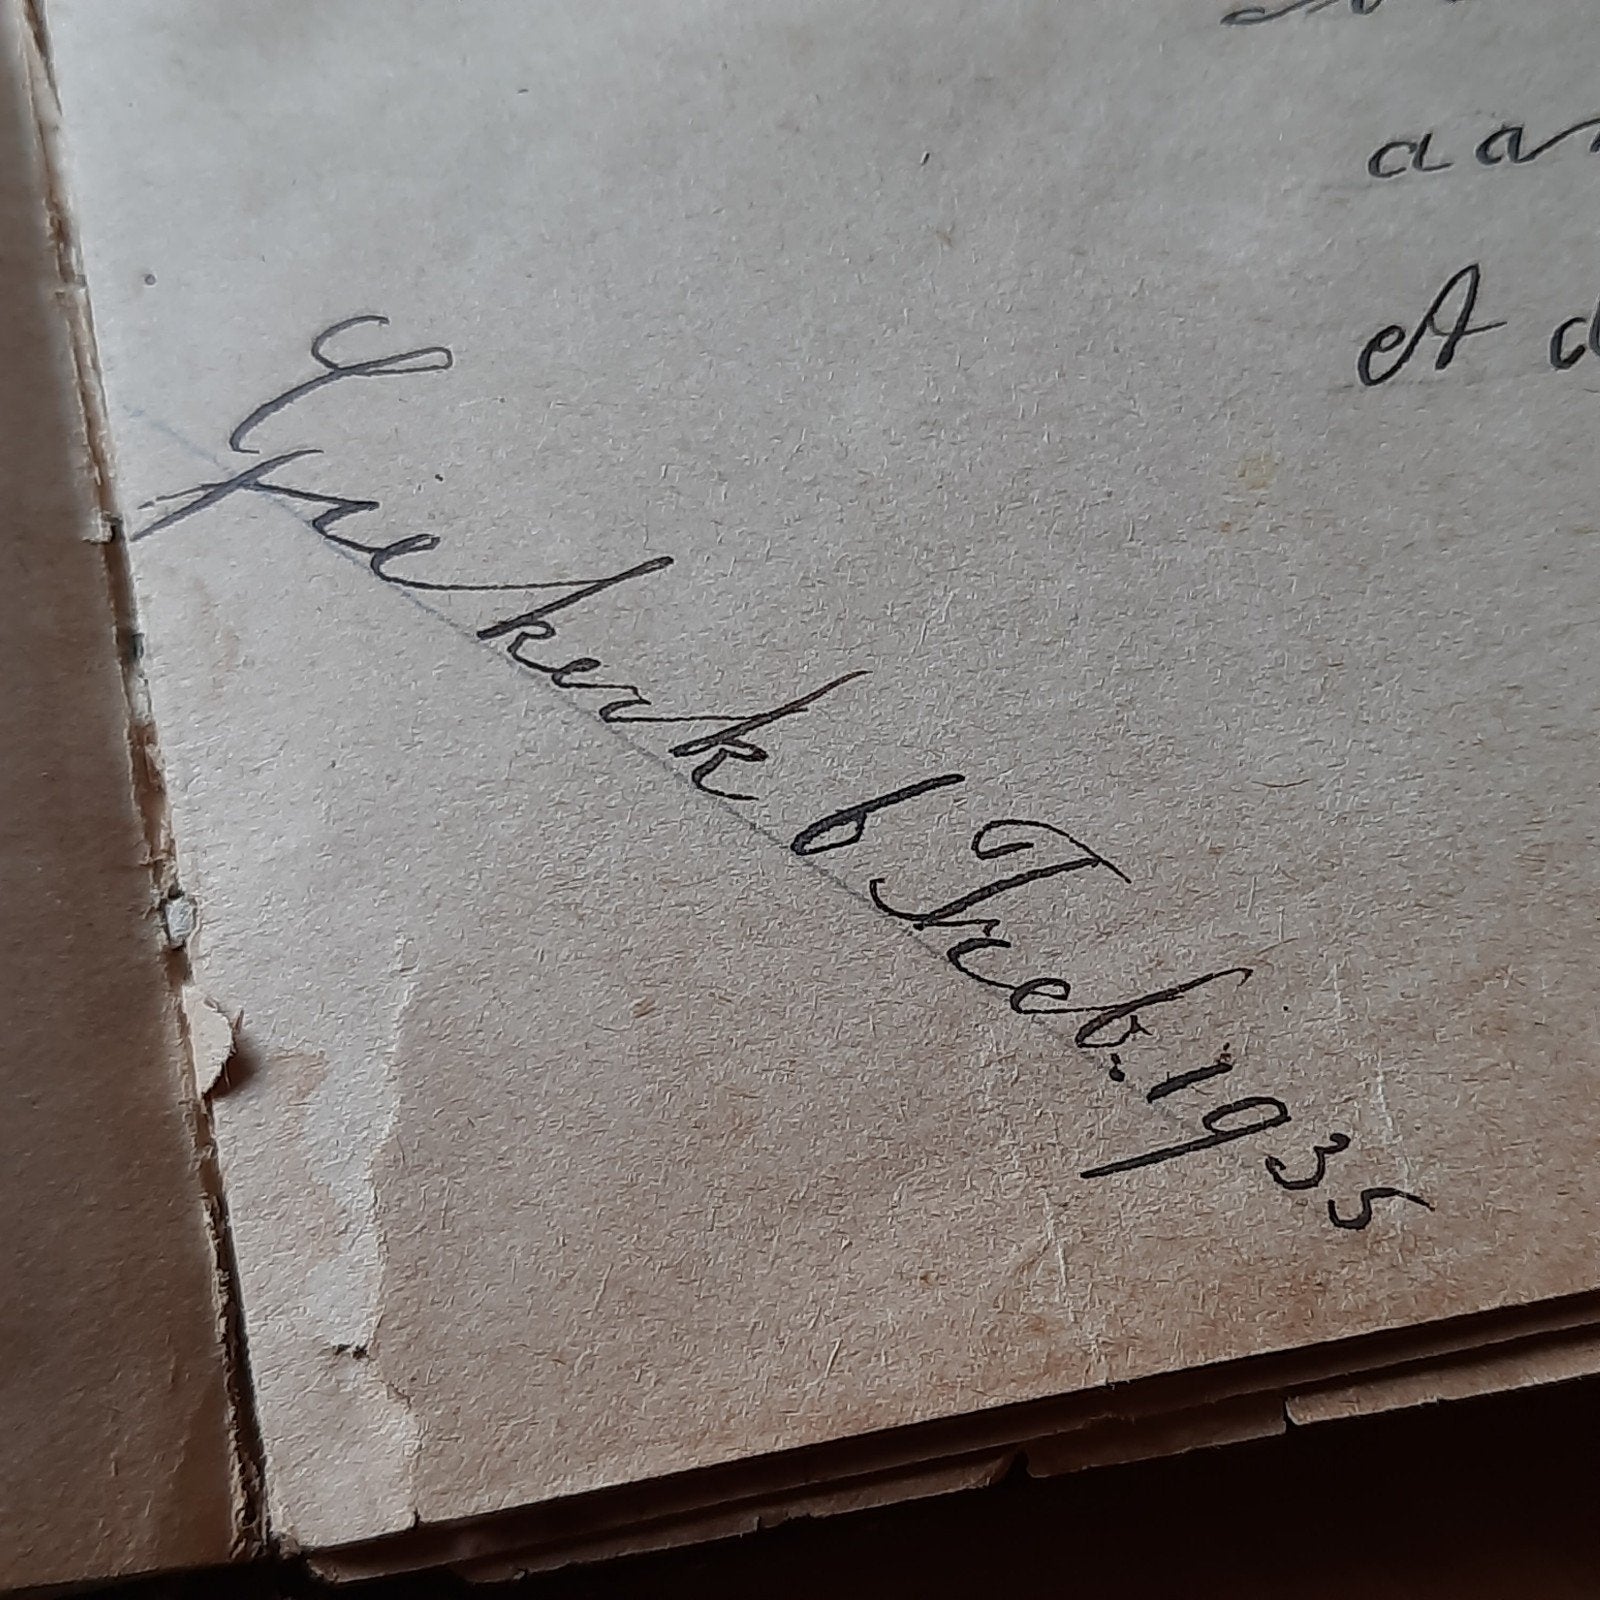 aan
A d
Giekerk 6 Feb: 1935